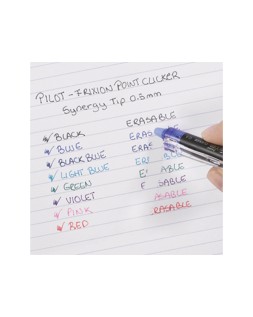 PILOT - FRIXION POINT CLICKER
Synergy Tip 0.5mm
ERASABLE
BLACK ERAS
BLUE ERAS
BLACK BLUE ERAS
LIGHT BLUE ER ABLE
GREEN E ABLE
VIOLET F SABLE
PINK ASABLE
RED RASABLE